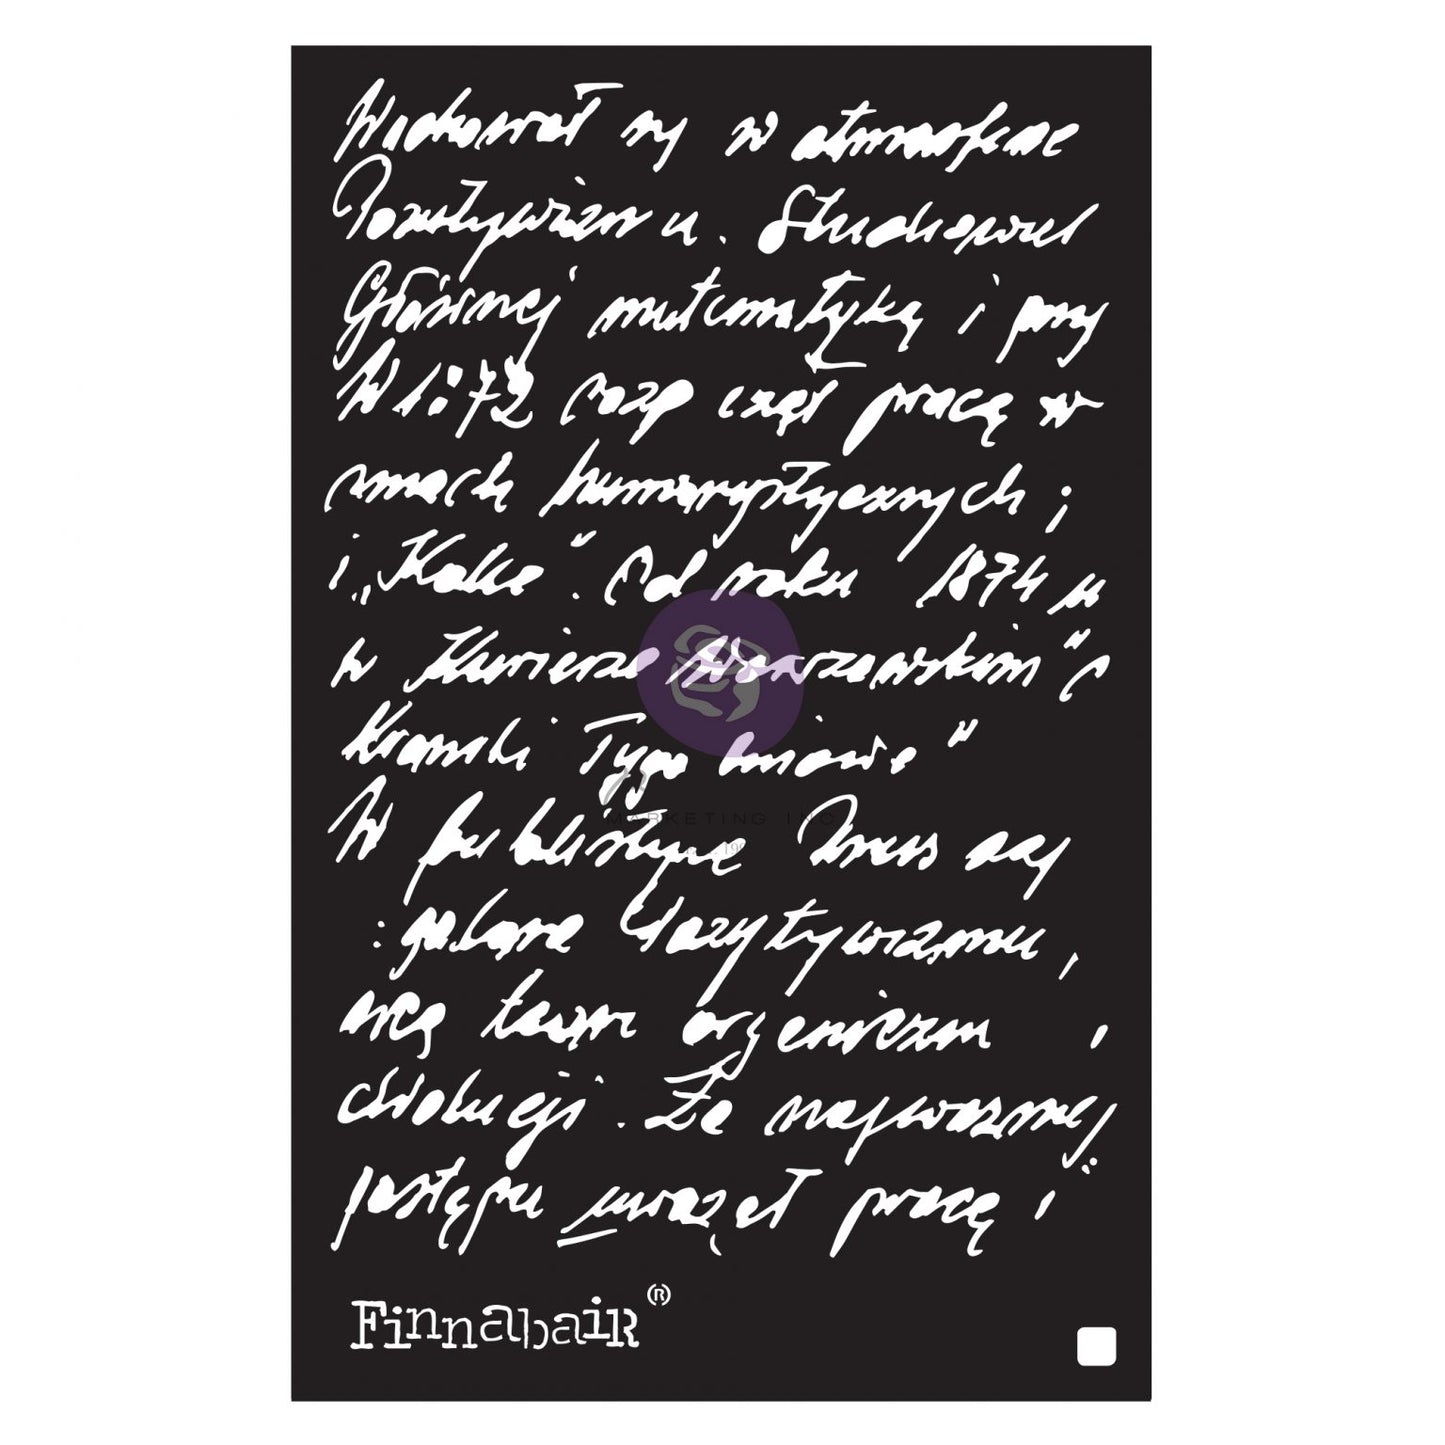 Wychował się w atmosferze
Pozytywizmu. Studiował
Głównej matematykę i przy
W 1872 rozp czął pracę w
smach humorystycznych i
i „Kolce". Od roku 1874 u
w Kurierze Warszawskim" i
Kronski Tygo dniowe"
W publistyce Prus
: Pozytywizmu,
organizm
ewolucji. Za najważniej
postępu uważał pracę i
Finnabair (R)
MARKETING INC